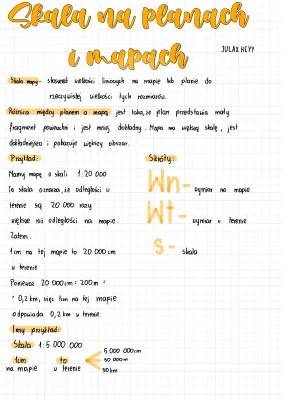 Skala na planach
i mapach
JULAX.HEYY
Skala mapy - stosunek wielkości liniowych na mapie lub planie do
rzeczywistej wielkości tych rozmiarów.
Różnica między planem a mapą jest taka, że plan przedstawia mały
fragment powierzchni i jest mniej dokładny. Mapa ma większą skalę, jest
dokładniejsza i pokazuje większy obszar.
Przykład:
Mamy mapę o skali 1:20 000
Ta skala oznacza, że odległości w
terenie są 20 000 razy
większe niż odległości na mapie.
Zatem:
1cm na tej mapie to 20 000 cm
w terenie
Ponieważ 20 000cm = 200m =
= 0,2 km, więc 1cm na tej mapie
odpowiada 0,2 km w terenie.
Inny przykład:
Skala 1:5 000 000
1cm to
na mapie w terenie
5 000 000cm
50 000m
50km
Skróty:
Wn - wymiar na mapie
Wt - wymiar w terenie
s - skala